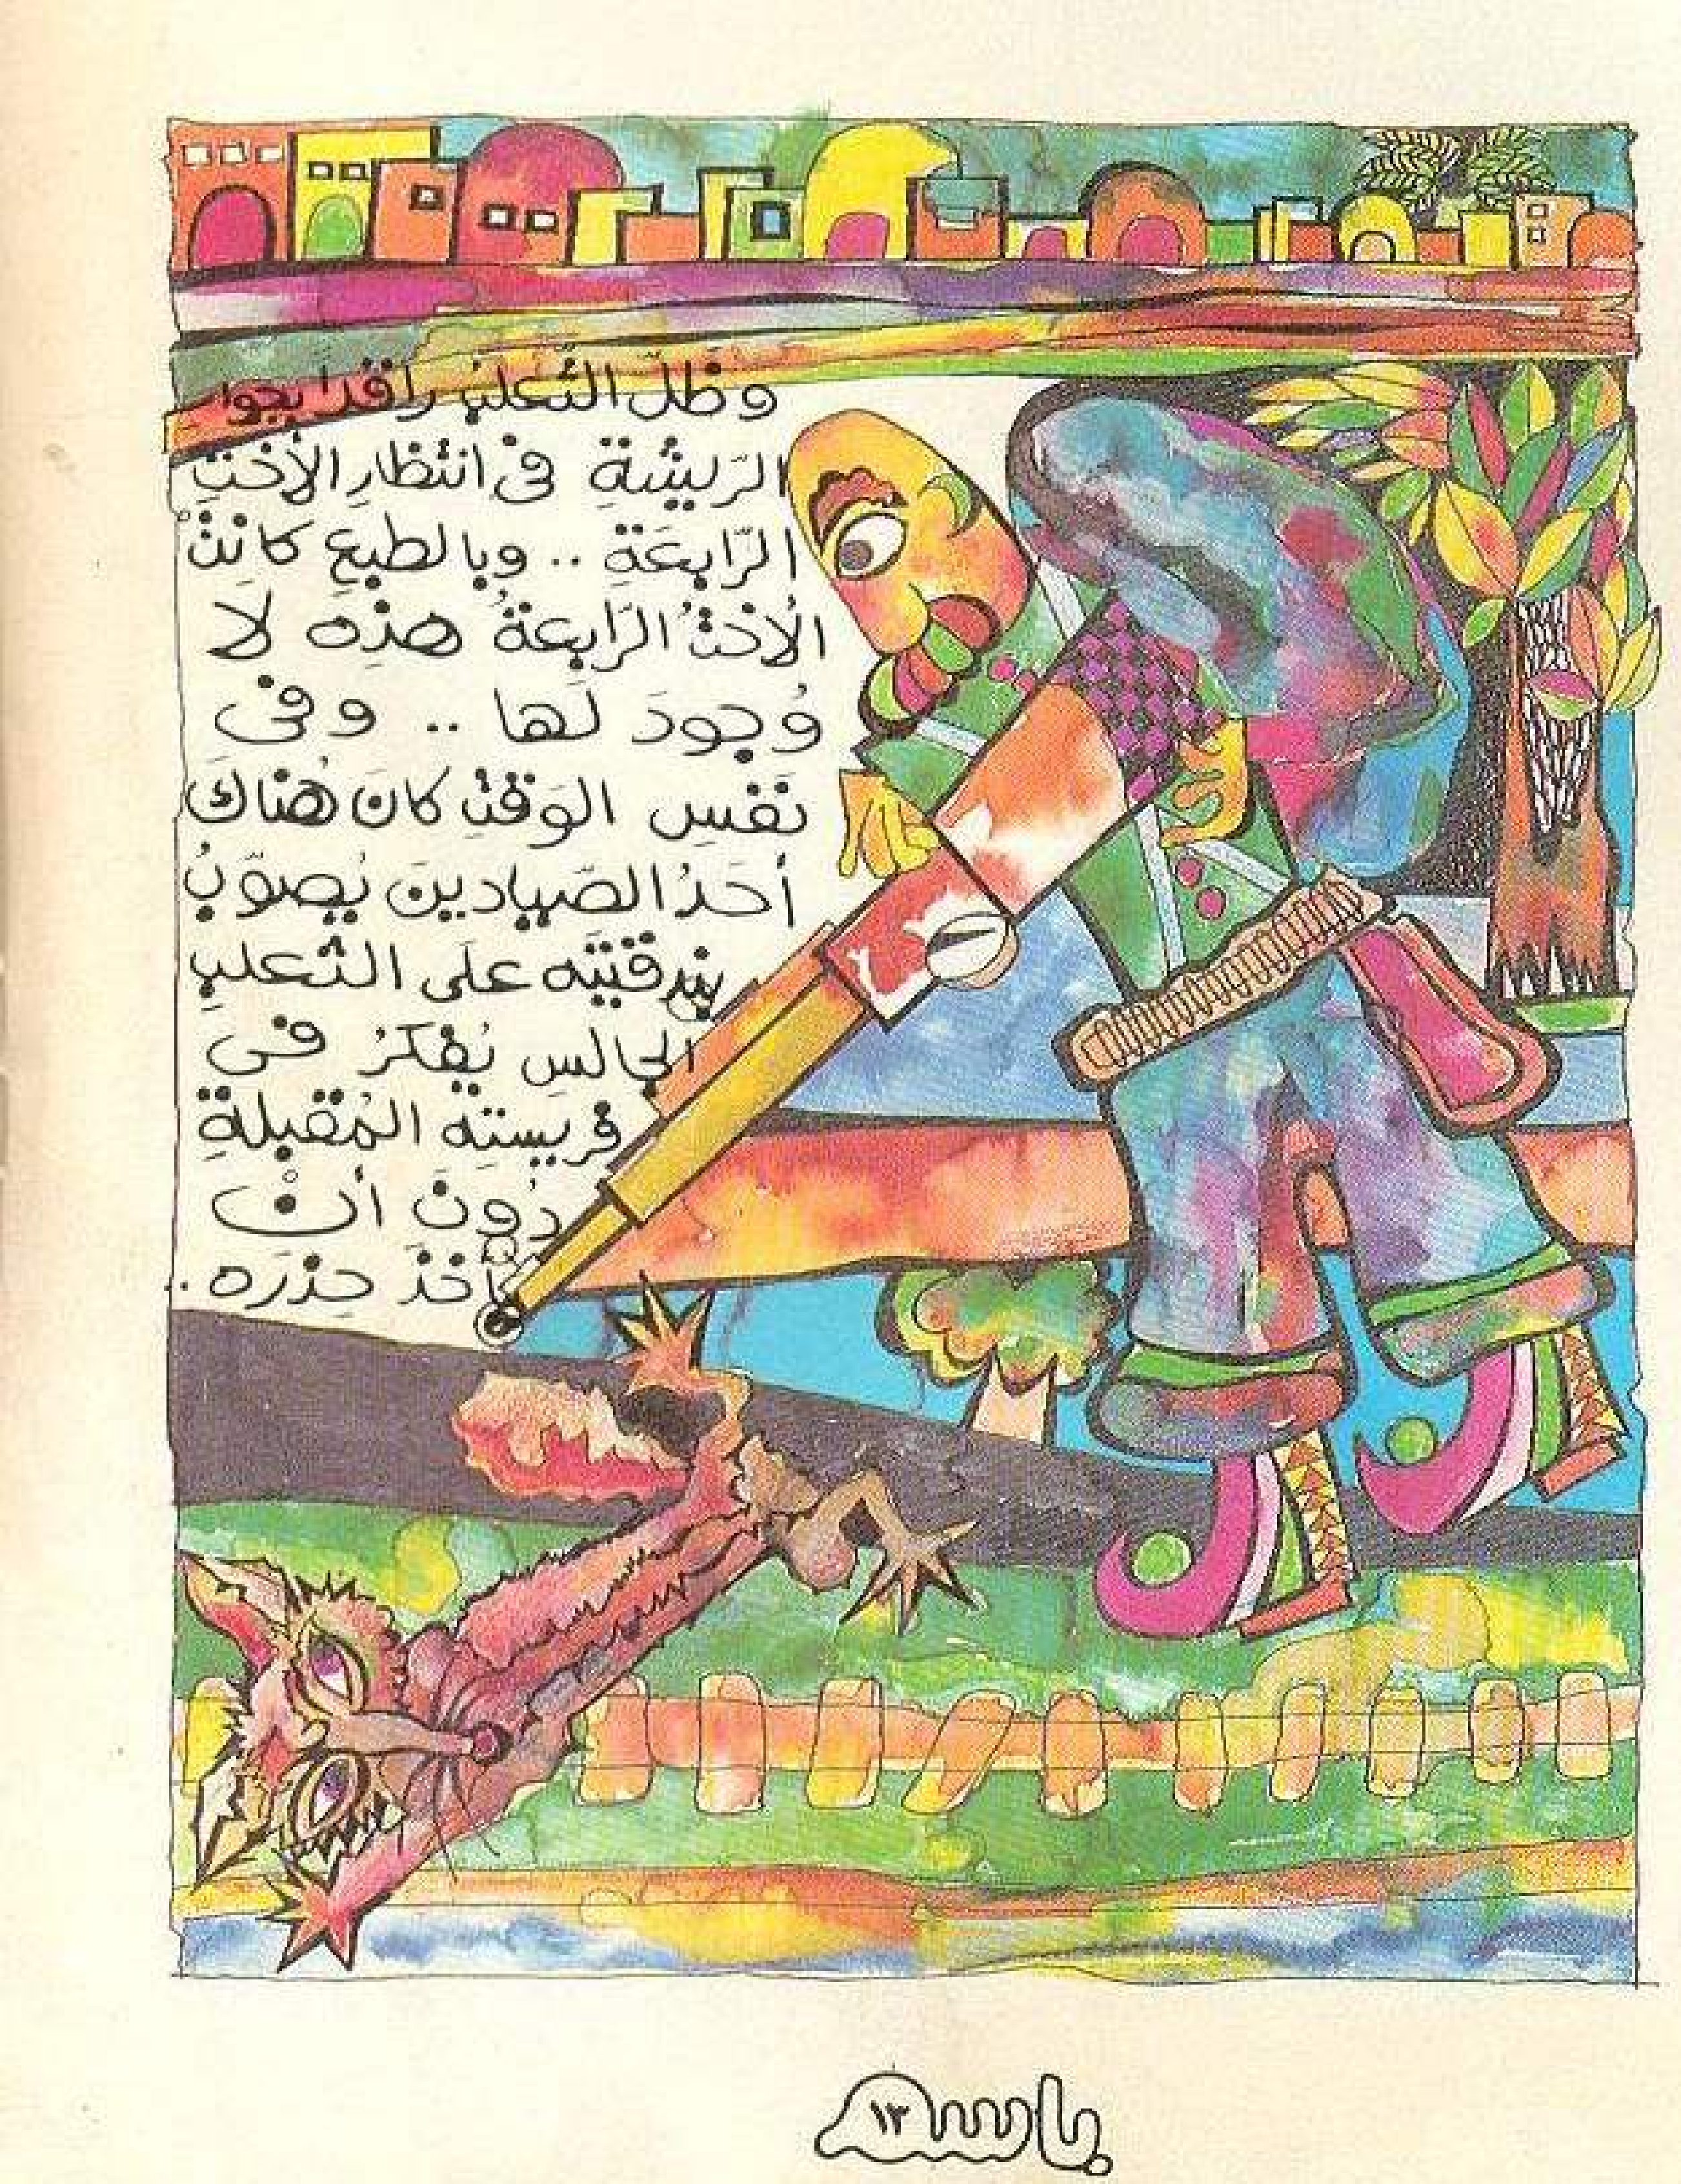 وظلّ الثعلبُ راقدًا بجوار
الرّيشةِ فى انتظارِ الأختِ
الرّابعَةِ .. وبالطبعِ كانتْ
الأختُ الرّابعةُ هذِه لا
وُجودَ لَها .. وفى
نَفسِ الوَقتِ كانَ هُناكَ
أحَدُ الصّيادينَ يُصوّبُ
بندقيتَه على الثعلبِ
الجالسِ يُفكرُ فى
فريستِه المُقبلةِ
دُونَ أنْ
يأخذَ حِذرَه .
باسم
١٣